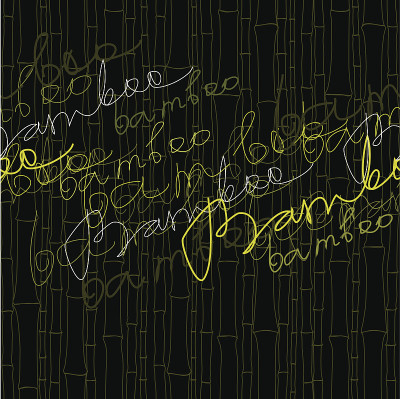 boo
bamboo
bamboo
bamboo
bamboo
bamboo
bamboo
bamboo
Bamboo
Bambo
bamboo